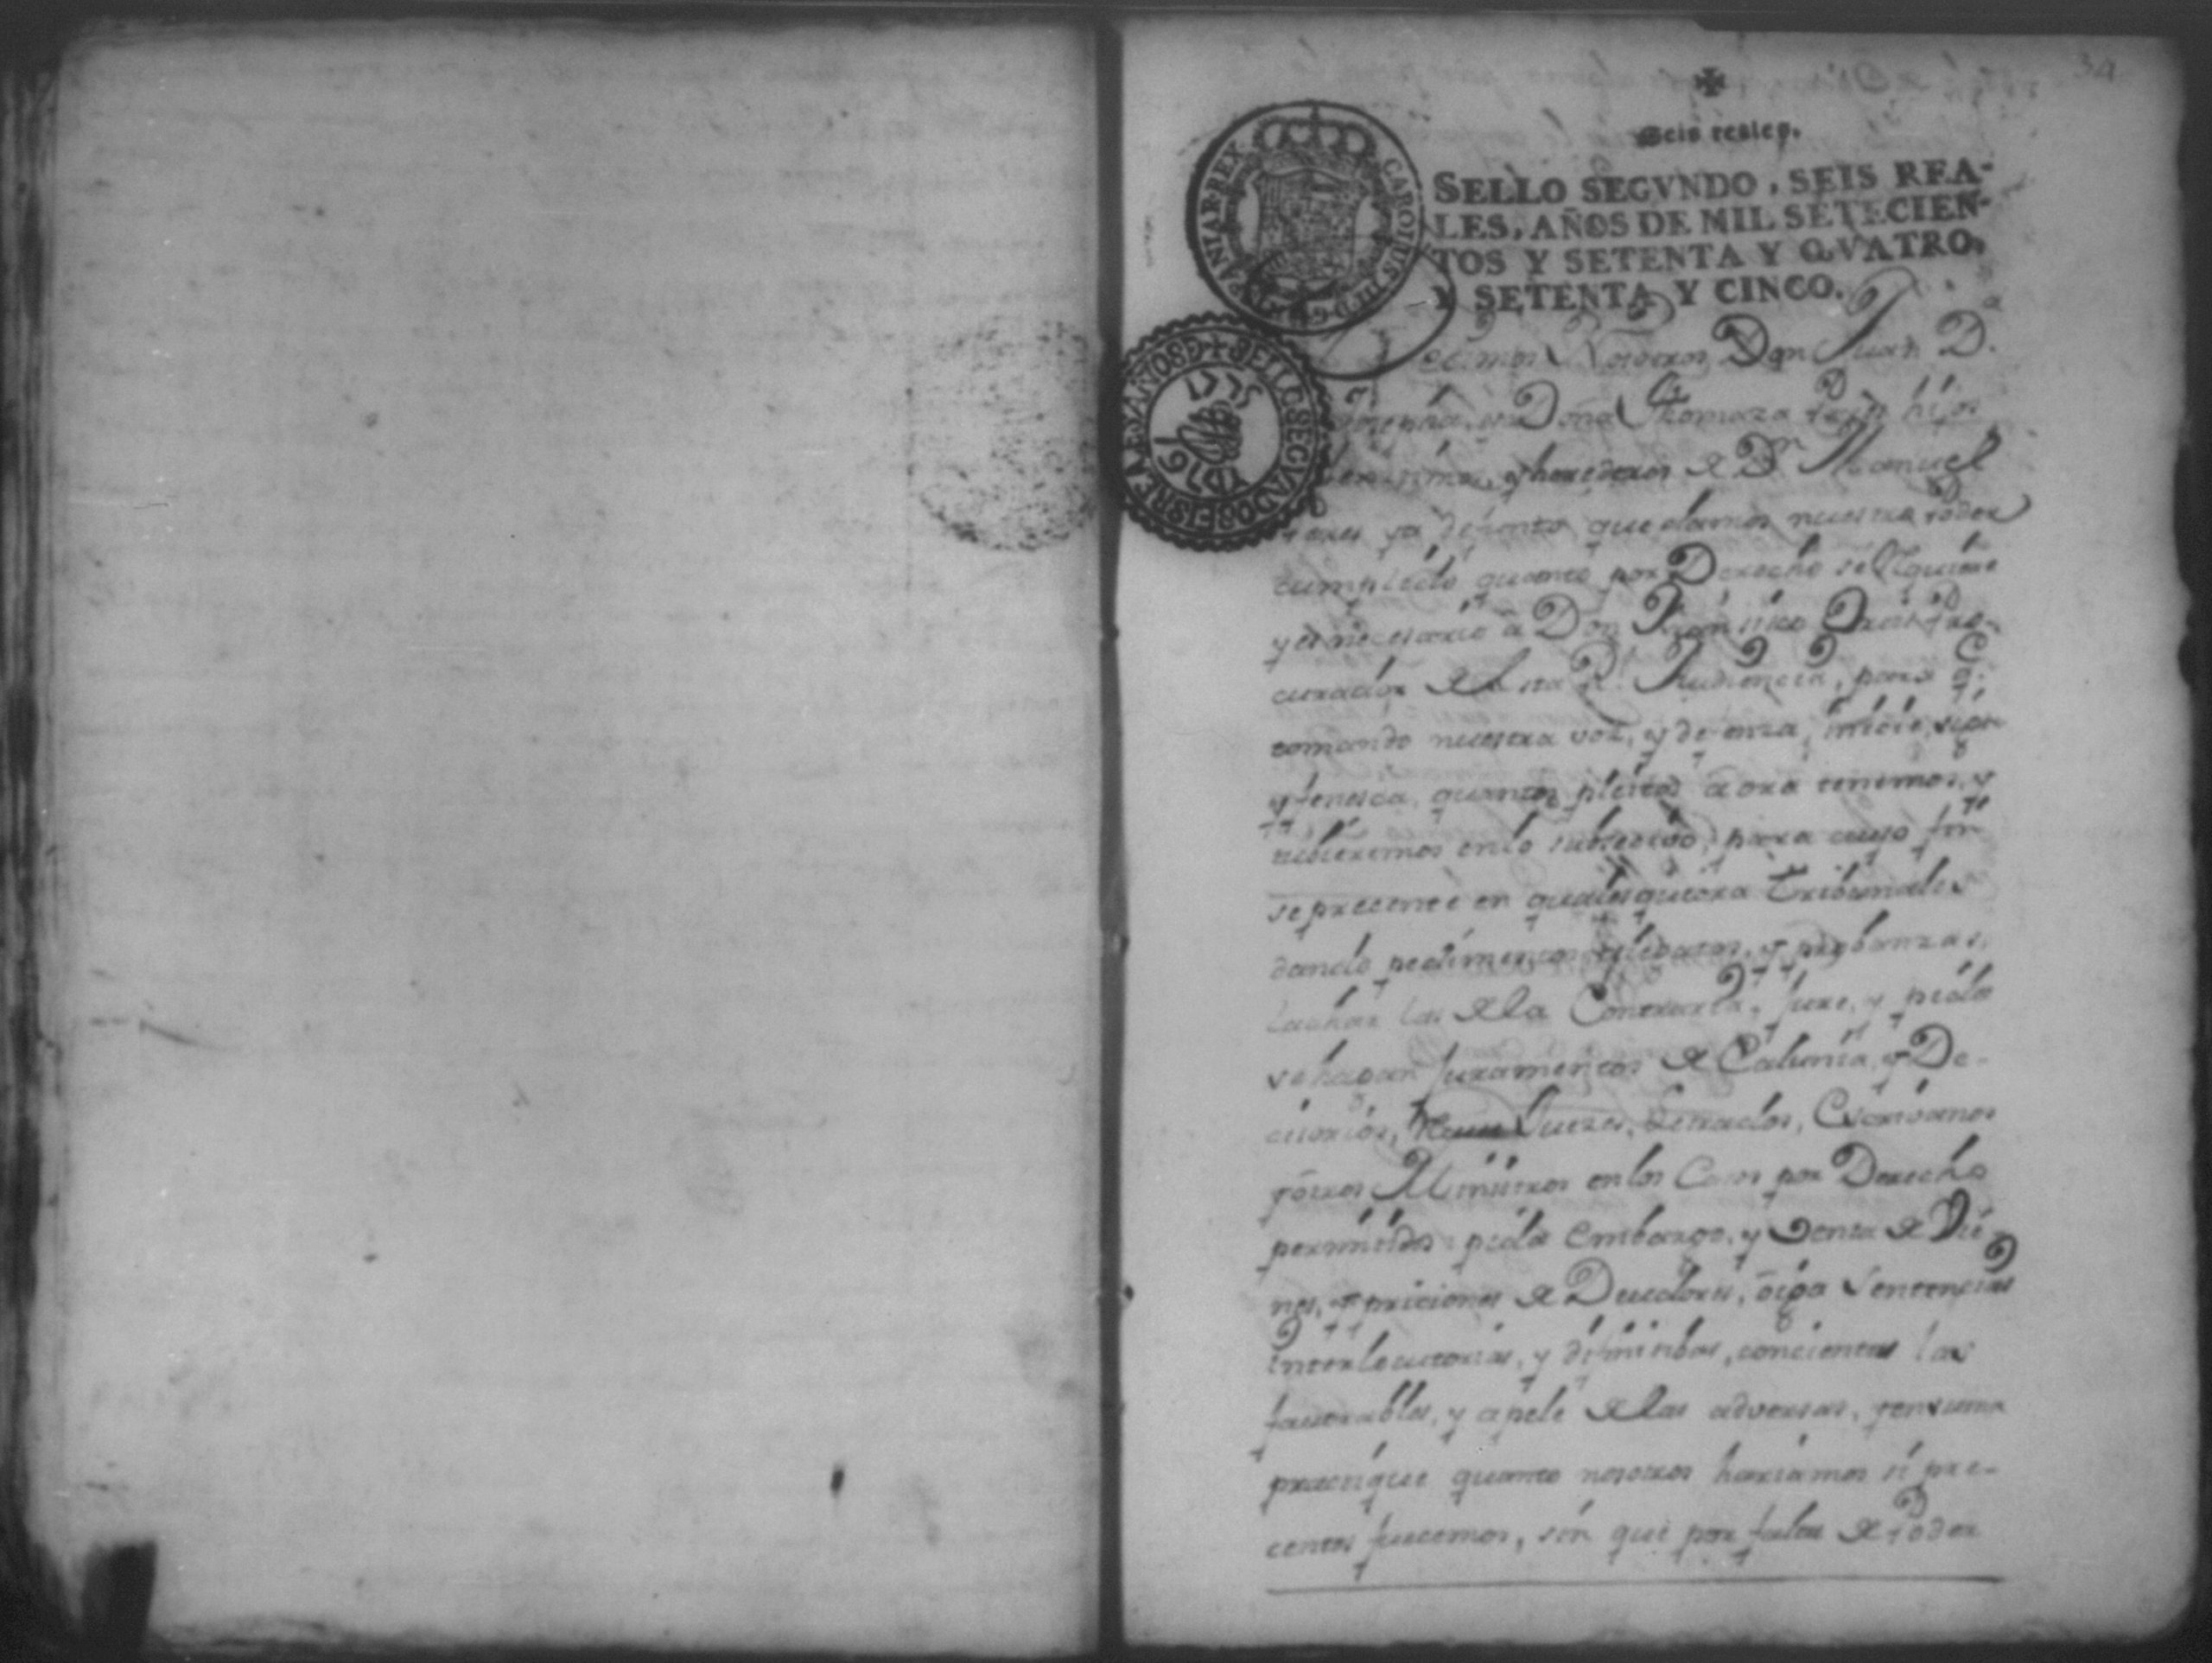 34
Seis reales.
SELLO SEGVNDO, SEIS REA-
LES, AÑOS DE MIL SETECIEN-
TOS Y SETENTA Y QVATRO,
Y SETENTA Y CINCO.
CAROLUS III D G HISPANIAR REX
SELLO SEGVNDO SEIS REALES AÑOS D
1775 Y D 76
Don Juan D.
Doña Thomaza hijos
y herederos de Dn Manuel
ya defunto que damos nuestro Poder
cumplido quanto por Derecho se Requiere
y es necesario â Don Fransisco Pro-
curador de esta Rl. Audiencia, para q.
tomando nuestra voz, y defenza, inicie, siga
y fenesca, quantos pleitos âora tenemos, y
tubieremos en lo subsesibo, para cuyo fin
se precente en qualesquiera Tribunales
dando pedimentos alegatos, y probanzas,
tachar las de la Contraria, jure, y pida
se hagan juramentos de Calunia, y De-
cisorios, Juezes, Letrados, Escribanos
y ôtros Ministros en los Casos por Derecho
permitidos pida embargo, y Venta de Vie
nes, y priciones de Deudores, ôiga Sentencias
interlocutorias, y difinitibas, concienta las
favorables, y apele de las adversas, y en suma
practique quanto nosotros hariamos si pre-
centes fuecemos, sin que por falta de Poder